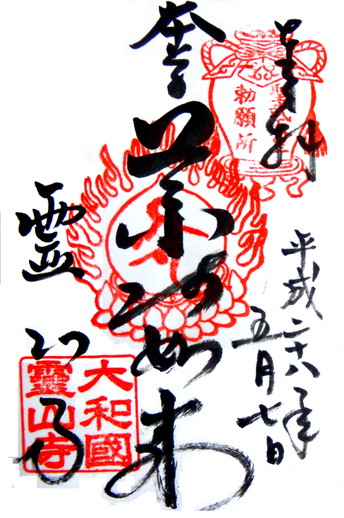 奉拝
勅願所
平成二十八年
五月七日
如来
霊山寺
大和國
靈山寺